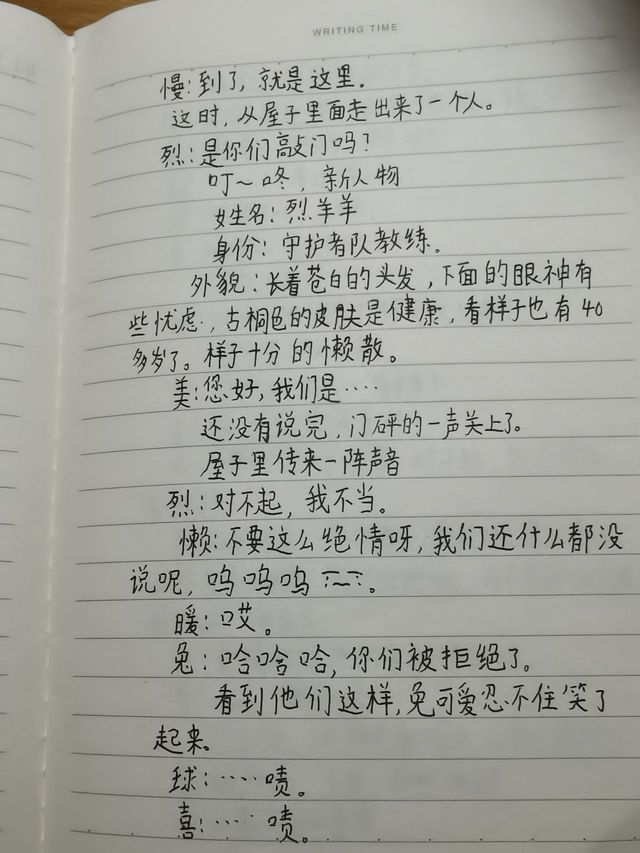 WRITING TIME
慢:到了,就是这里。
这时,从屋子里面走出来了一个人。
烈:是你们敲门吗?
叮~咚,新人物
姓名:烈羊羊
身份:守护者队教练。
外貌:长着苍白的头发,下面的眼神有
些忧虑,古桐色的皮肤是健康,看样子也有40
多岁了。样子十分的懒散。
美:您好,我们是····
还没有说完,门砰的一声关上了。
屋子里传来一阵声音
烈:对不起,我不当。
懒:不要这么绝情呀,我们还什么都没
说呢,呜呜呜。
暖:哎。
兔:哈哈哈,你们被拒绝了。
看到他们这样,兔可爱忍不住笑了
起来。
球:····啧。
喜:····啧。